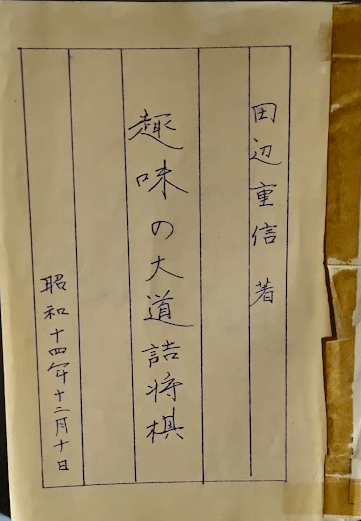 田辺重信 著
趣味の大道詰将棋
昭和十四年十二月十日